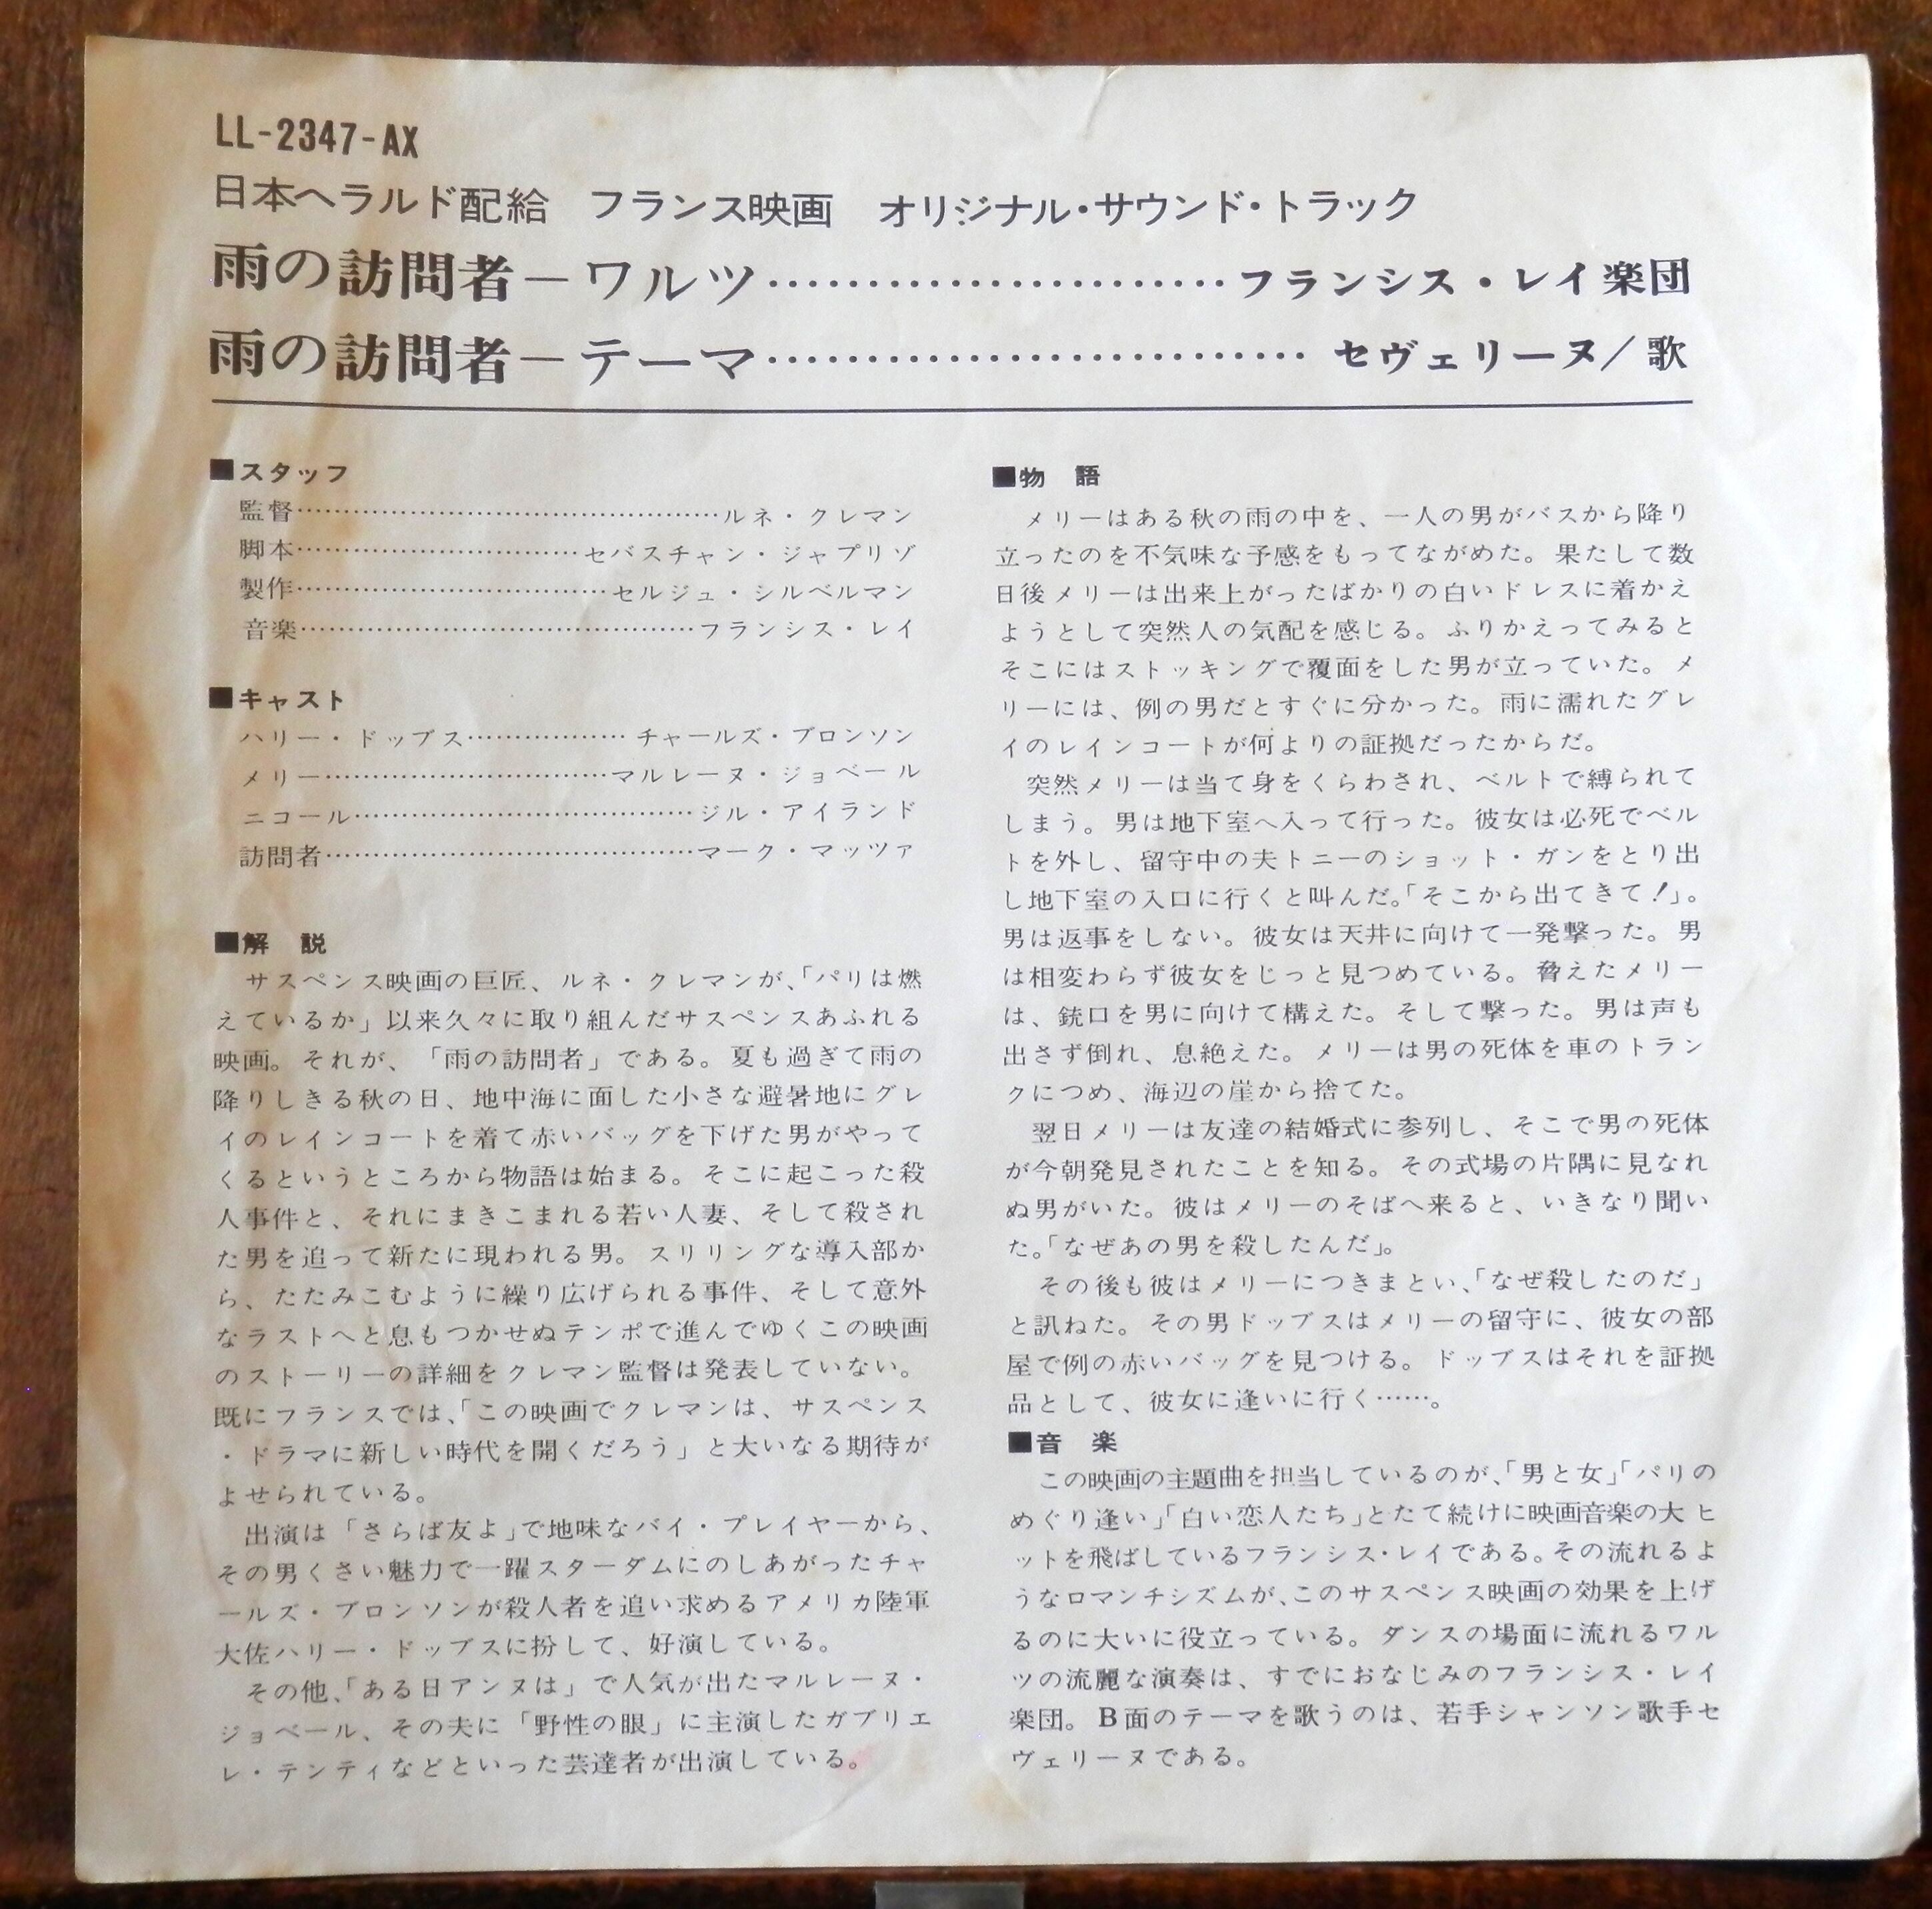 LL-2347-AX
日本ヘラルド配給　フランス映画　オリジナル・サウンド・トラック
雨の訪問者－ワルツ……………………フランシス・レイ楽団
雨の訪問者－テーマ……………………… セヴェリーヌ／歌
■スタッフ
監督………………………………………ルネ・クレマン
脚本…………………………セバスチャン・ジャプリゾ
製作……………………………セルジュ・シルベルマン
音楽……………………………………フランシス・レイ
■キャスト
ハリー・ドッブス……………… チャールズ・ブロンソン
メリー…………………………マルレーヌ・ジョベール
ニコール………………………………ジル・アイランド
訪問者…………………………………マーク・マッツァ
■解　説
　サスペンス映画の巨匠、ルネ・クレマンが、「パリは燃
えているか」以来久々に取り組んだサスペンスあふれる
映画。それが、「雨の訪問者」である。夏も過ぎて雨の
降りしきる秋の日、地中海に面した小さな避暑地にグレ
イのレインコートを着て赤いバッグを下げた男がやって
くるというところから物語は始まる。そこに起こった殺
人事件と、それにまきこまれる若い人妻、そして殺され
た男を追って新たに現われる男。スリリングな導入部か
ら、たたみこむように繰り広げられる事件、そして意外
なラストへと息もつかせぬテンポで進んでゆくこの映画
のストーリーの詳細をクレマン監督は発表していない。
既にフランスでは、「この映画でクレマンは、サスペンス
・ドラマに新しい時代を開くだろう」と大いなる期待が
よせられている。
　出演は「さらば友よ」で地味なバイ・プレイヤーから、
その男くさい魅力で一躍スターダムにのしあがったチャ
ールズ・ブロンソンが殺人者を追い求めるアメリカ陸軍
大佐ハリー・ドッブスに扮して、好演している。
　その他、「ある日アンヌは」で人気が出たマルレーヌ・
ジョベール、その夫に「野性の眼」に主演したガブリエ
レ・テンティなどといった芸達者が出演している。
■物　語
　メリーはある秋の雨の中を、一人の男がバスから降り
立ったのを不気味な予感をもってながめた。果たして数
日後メリーは出来上がったばかりの白いドレスに着かえ
ようとして突然人の気配を感じる。ふりかえってみると
そこにはストッキングで覆面をした男が立っていた。メ
リーには、例の男だとすぐに分かった。雨に濡れたグレ
イのレインコートが何よりの証拠だったからだ。
　突然メリーは当て身をくらわされ、ベルトで縛られて
しまう。男は地下室へ入って行った。彼女は必死でベル
トを外し、留守中の夫トニーのショット・ガンをとり出
し地下室の入口に行くと叫んだ。「そこから出てきて！」。
男は返事をしない。彼女は天井に向けて一発撃った。男
は相変わらず彼女をじっと見つめている。脅えたメリー
は、銃口を男に向けて構えた。そして撃った。男は声も
出さず倒れ、息絶えた。メリーは男の死体を車のトラン
クにつめ、海辺の崖から捨てた。
　翌日メリーは友達の結婚式に参列し、そこで男の死体
が今朝発見されたことを知る。その式場の片隅に見なれ
ぬ男がいた。彼はメリーのそばへ来ると、いきなり聞い
た。「なぜあの男を殺したんだ」。
　その後も彼はメリーにつきまとい、「なぜ殺したのだ」
と訊ねた。その男ドッブスはメリーの留守に、彼女の部
屋で例の赤いバッグを見つける。ドッブスはそれを証拠
品として、彼女に逢いに行く……。
■音　楽
　この映画の主題曲を担当しているのが、「男と女」「パリの
めぐり逢い」「白い恋人たち」とたて続けに映画音楽の大ヒ
ットを飛ばしているフランシス・レイである。その流れるよ
うなロマンチシズムが、このサスペンス映画の効果を上げ
るのに大いに役立っている。ダンスの場面に流れるワル
ツの流麗な演奏は、すでにおなじみのフランシス・レイ
楽団。B面のテーマを歌うのは、若手シャンソン歌手セ
ヴェリーヌである。